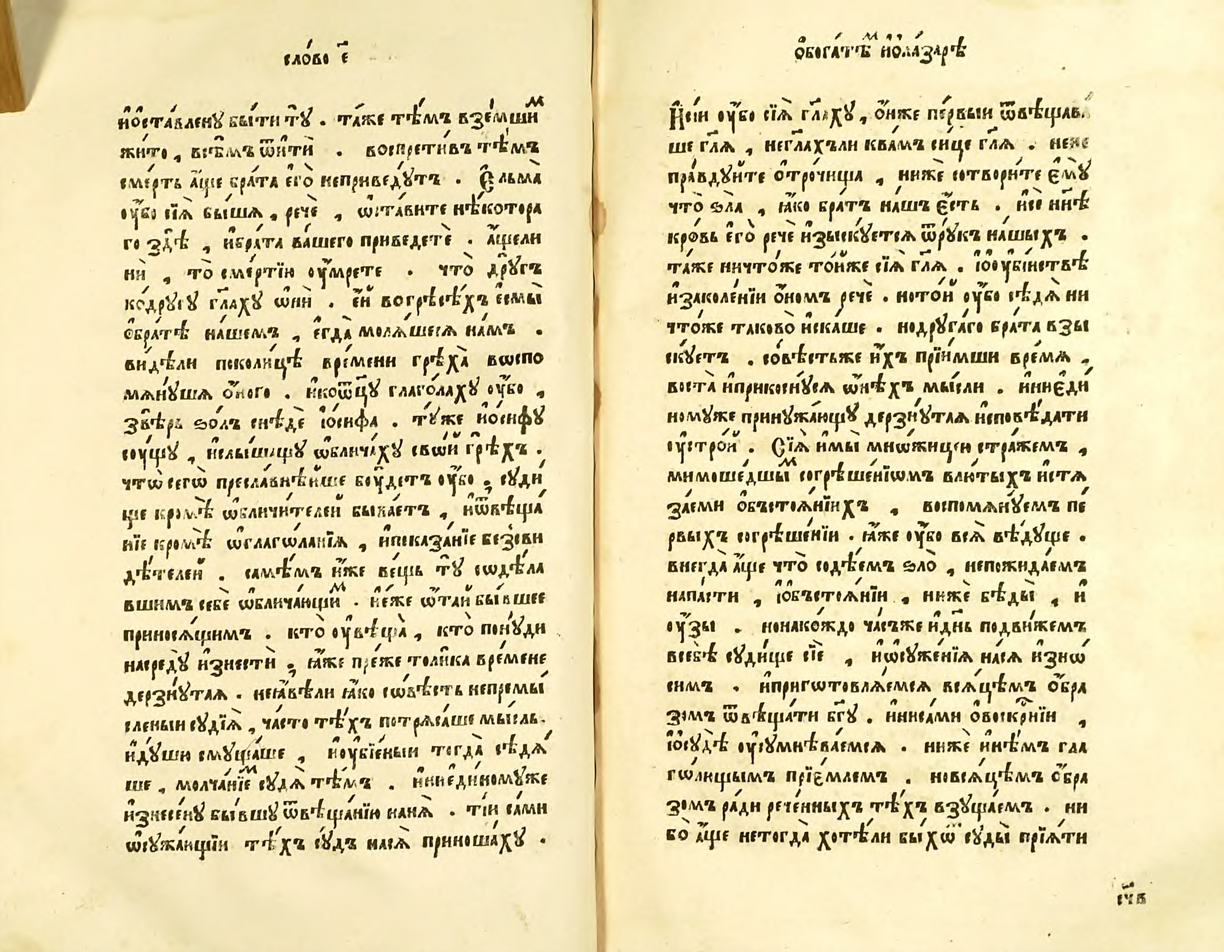 сло́во е҃
и҆оста́вленꙋ бы́ти тꙋ̀ . та́же тѣ́мъ взе́мшиⷨ
жи́то , всѣ́мъ ѿи҆тѝ . воспрети́въ тѣ́мъ
сме́рть а҆́ще бра́та є҆го̀ неприведꙋ́тъ . Є҆льма̀
ᲂу҆́бо сїѧ̀ бы́шѧ , речѐ , ѡ҆ста́вите нѣ́котора
го здѣ̀ , и҆бра́та ва́шего приведе́те . а҆́щели
нѝ , то сме́ртїи ᲂу҆́мрете . что̀ дрꙋ́гъ
кодрꙋ́гꙋ гл҃ахꙋ ѡ҆нѝ . є҆́й вогрѣсѣ́хъ є҆смы̀
ѡ҆бра́тѣ на́шемъ , є҆гда̀ молѧ́шесѧ на́мъ .
ви́дѣли поколи́цѣ вре́мени грѣха̀ воспо
мѧнꙋ́шѧ о҆́ного . и҆коѿцꙋ̀ глаго́лахꙋ ᲂу҆́бо ,
ѕвѣ́рь ѕо́лъ снѣ́де і҆о́сифа . тꙋ́же и҆о́сифꙋ
сꙋ́щꙋ , ислы́шащꙋ ѡ҆блича́хꙋ сво́й грѣ́хъ .
что̀ сегѡ̀ пресла́внѣйше бꙋ́детъ ᲂу҆́бо , сꙋди́
ще кро́мѣ ѡ҆бличи́телей быва́етъ , и҆ѿвѣща́
нїе кро́мѣ ѡ҆глаго́ланїѧ , и҆показа́нїе безсви
дѣ́телей . самѣ́мъ и҆́же ве́щь тꙋ̀ содѣ́ла
вшимъ себѐ ѡ҆блича́ющиⷨ . и҆е҆́же ѡ҆та́й бы́вшее
принося́щимъ . кто̀ ᲂу҆вѣща̀ , кто̀ понꙋ́ди
насредꙋ̀ и҆знестѝ , ꙗ҆́же пре́же толи́ка вре́мене
дерзнꙋ́таѧ . неꙗ҆́вѣли ꙗ҆́ко со́вѣсть непремы́
сленыи сꙋдїѧ̀ , ча́сто тѣ́хъ потрѧса́ше мы́сль .
и҆дꙋ́шꙋ смꙋща́ше , и҆ᲂу҆бїе́ныи тогда̀ сѣдѧ́
ше , молча́нїеⷨ сꙋдѧ̀ тѣ́мъ . и҆ниеди́номꙋже
и҆знесе́нꙋ бы́вшꙋ ѿвѣща́нїю нанѧ̀ . ті́и са́ми
ѡ҆сꙋжа́ющїи тѣ́хъ сꙋ́дъ насѧ̀ приноша́хꙋ .
ѡ҆бога́тѣⷨ и҆ола́зарѣ
И҆сі́и ᲂу҆́бо сїѧ̀ гл҃ахꙋ , о҆́нже пе́рвыи ѿвѣщава́
ше гл҃ѧ , негл҃ахъли ква́мъ си́це гл҃ѧ . нене
пра́вдꙋйте о҆́трочища , нижѐ сотвори́те є҆мꙋ̀
что̀ ѕла̀ , ꙗ҆́ко бра́тъ на́шъ є҆́сть . и҆сѐ нн҃ѣ
кро́вь є҆го̀ речѐ и҆зы́скꙋетсѧ ѿрꙋ́къ на́шыхъ .
та́же ничто́же то́йже сїѧ̀ гл҃ѧ . і҆оᲂу҆бі́йствѣ
и҆закле́нїи о҆́номъ речѐ . ното́й ᲂу҆́бо сѣдѧ̀ ни
что́же таково̀ и҆ска́ше . нодрꙋга́го бра́та взы
скꙋ́етъ . со́вѣстьже и҆́хъ прїи́мши вре́мѧ ,
воста̀ и҆прикоснꙋ́сѧ ѡ҆нѣ́хъ мы́сли . и҆ниеди́
номꙋже принꙋжа́ющꙋ дерзнꙋ́таѧ и҆сповѣ́дати
ᲂу҆стро́й . Сїѧ̀ и҆мы̀ мно́жицею стра́жемъ ,
мимоше́дшыⷨ согрѣше́нїѡмъ влю́тыхъ и҆стѧ
за́еми ѡ҆бъстоѧ́нїихъ , воспомѧнꙋ́емъ пе́
рвыхъ согрѣше́нїи . ꙗ҆́же ᲂу҆́бо всѧ̀ вѣ́дꙋще .
внегда̀ а҆́ще что̀ содѣ́емъ ѕло̀ , непожида́емъ
напа́сти , і҆ѡ҆бъстоѧ́нїи , нижѐ бѣды̀ , и҆
ᲂу҆́зы . нонако́ждо ча́съже и҆дн҃ь подви́жемъ
всебѣ̀ сꙋди́ще сїѐ , и҆ѡ҆сꙋже́нїѧ насѧ̀ и҆зно́
симъ . и҆приготовлѧ́емсѧ всѧ́цѣмъ ѻ҆́бра
зомъ ѿвѣща́ти бг҃ꙋ . и҆нисами ѡ҆воскр҃нїи ,
і҆ѡ҆сꙋдѣ̀ ᲂу҆сꙋмнѣва́емсѧ . нижѐ и҆нѣ́мъ гла
го́лющымъ прїе́млемъ . новсѧ́цѣмъ ѻ҆́бра
зомъ ра́ди рече́нныхъ тѣ́хъ взꙋща́емъ . ни
бо̀ а҆́ще нетогда̀ хотѣ́ли бы́хѡⷨ сꙋды̀ прїѧ́ти
сч҃в